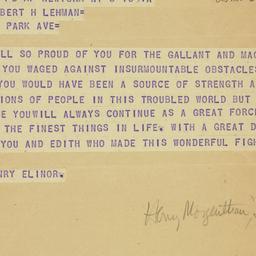 BERT H LEHMAN=
PARK AVE=
LL SO PROUD OF YOU FOR THE GALLANT AND MAG
YOU WAGED AGAINST INSURMOUNTABLE OBSTACLES
YOU WOULD HAVE BEEN A SOURCE OF STRENGTH A
IONS OF PEOPLE IN THIS TROUBLED WORLD BUT
E YOUWILL ALWAYS CONTINUE AS A GREAT FORCE
THE FINEST THINGS IN LIFE. WITH A GREAT D
YOU AND EDITH WHO MADE THIS WONDERFUL FIGH
NRY ELINOR.
Henry Morgenthau,